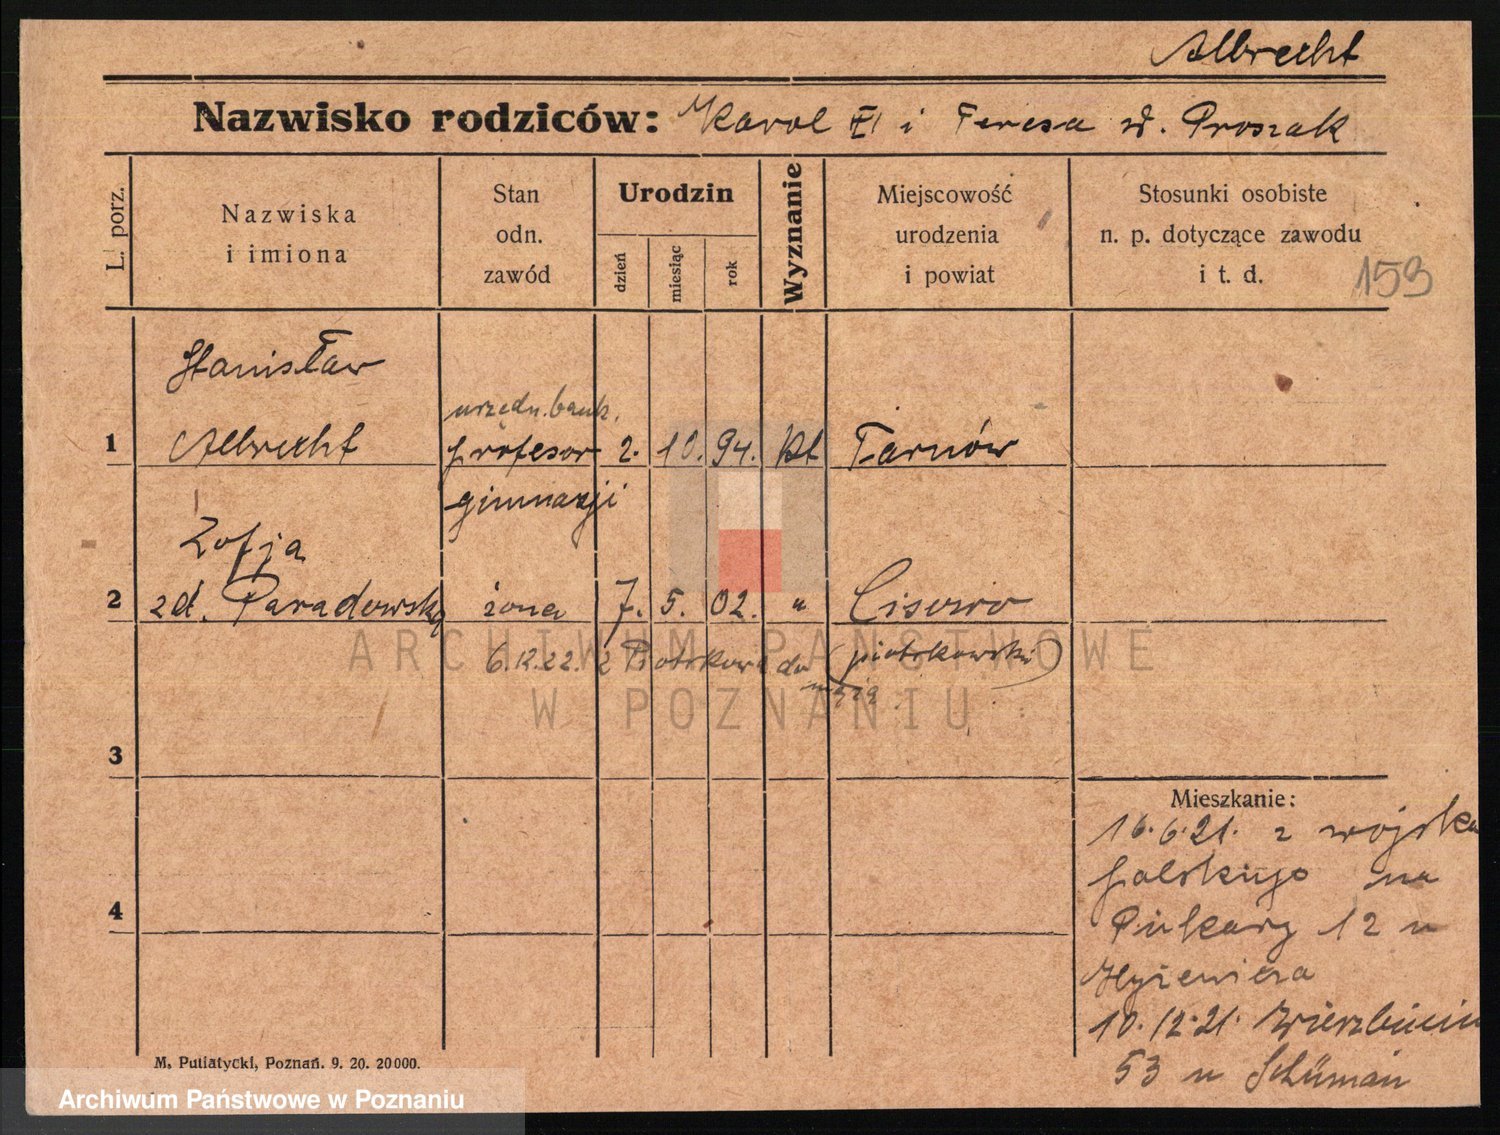 Albrecht
Nazwisko rodziców: Karol i Teresa z d. Proszak
L. porz.
Nazwiska
i imiona
Stan
odn.
zawód
Urodzin
dzień
miesiąc
rok
Wyznanie
Miejscowość
urodzenia
i powiat
Stosunki osobiste
n. p. dotyczące zawodu
i t. d.
153
Stanisław
urzędn. bank.
1 Albrecht profesor 2. 10. 94. kt Tarnów
gimnazji
Zofja
2 zd. Paradowska żona 7. 5. 02. " Cisowo
6.12.22. z Piotrkowa do męża (piotrkowski)
ARCHIWUM PAŃSTWOWE
W POZNANIU
3
Mieszkanie:
16.6.21. z wojska
polskiego na
Piekary 12 u
4
10.12.21. Wierzbięcin
53 u Schüman
M. Putiatycki, Poznań. 9. 20. 20000.
Archiwum Państwowe w Poznaniu